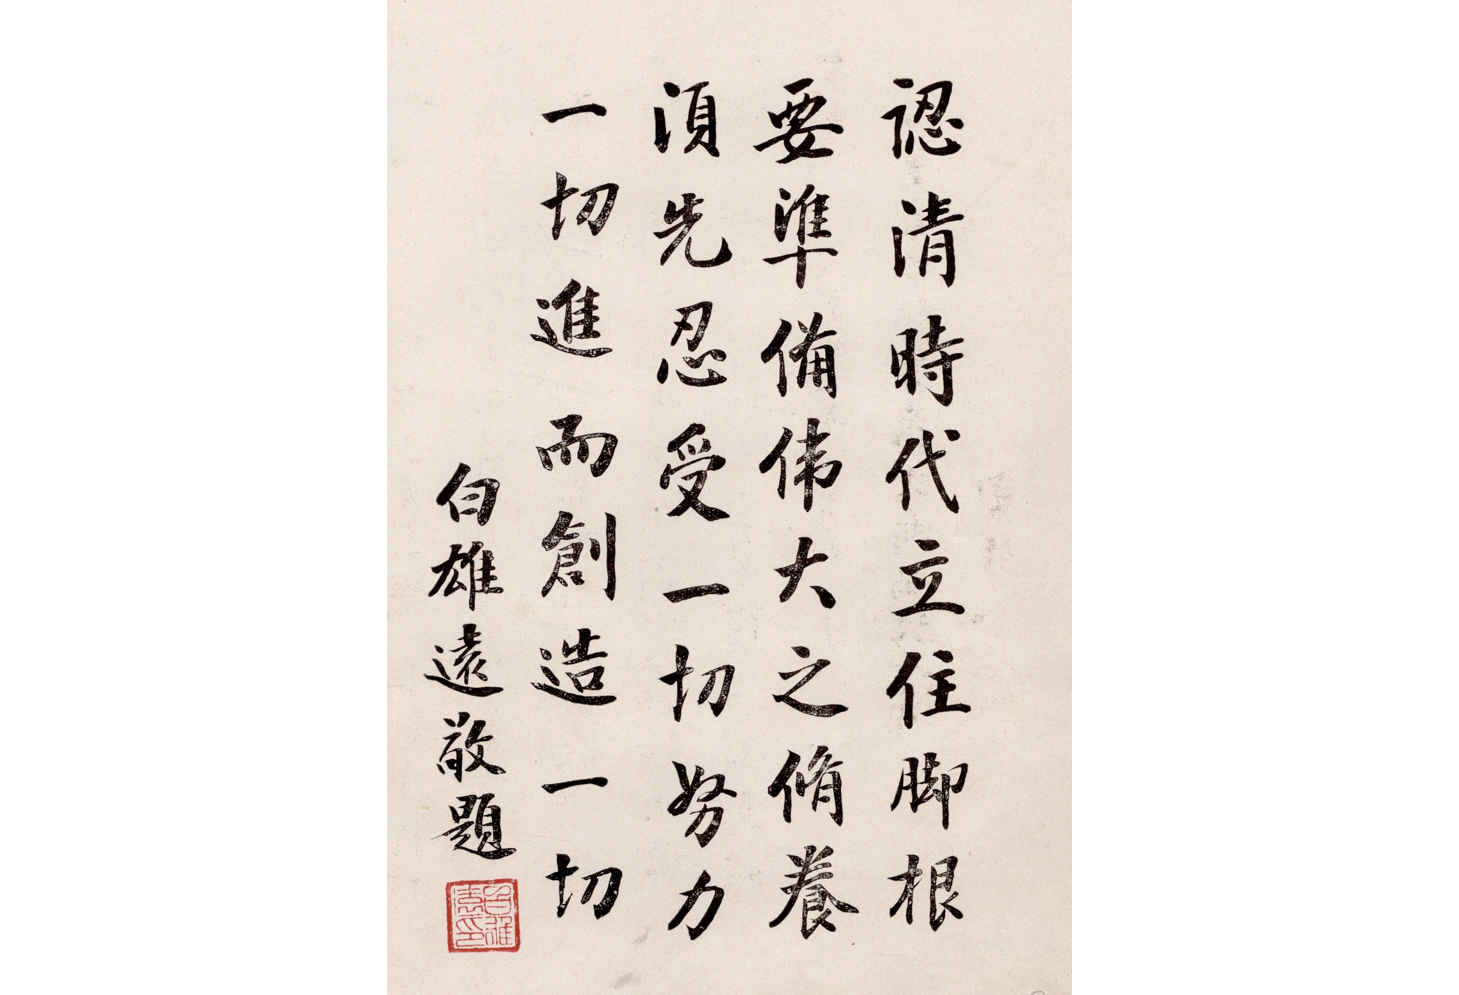 認清時代立住脚根
要準備伟大之脩養
須先忍受一切努力
一切進而創造一切
白雄遠敬題
白雄遠印